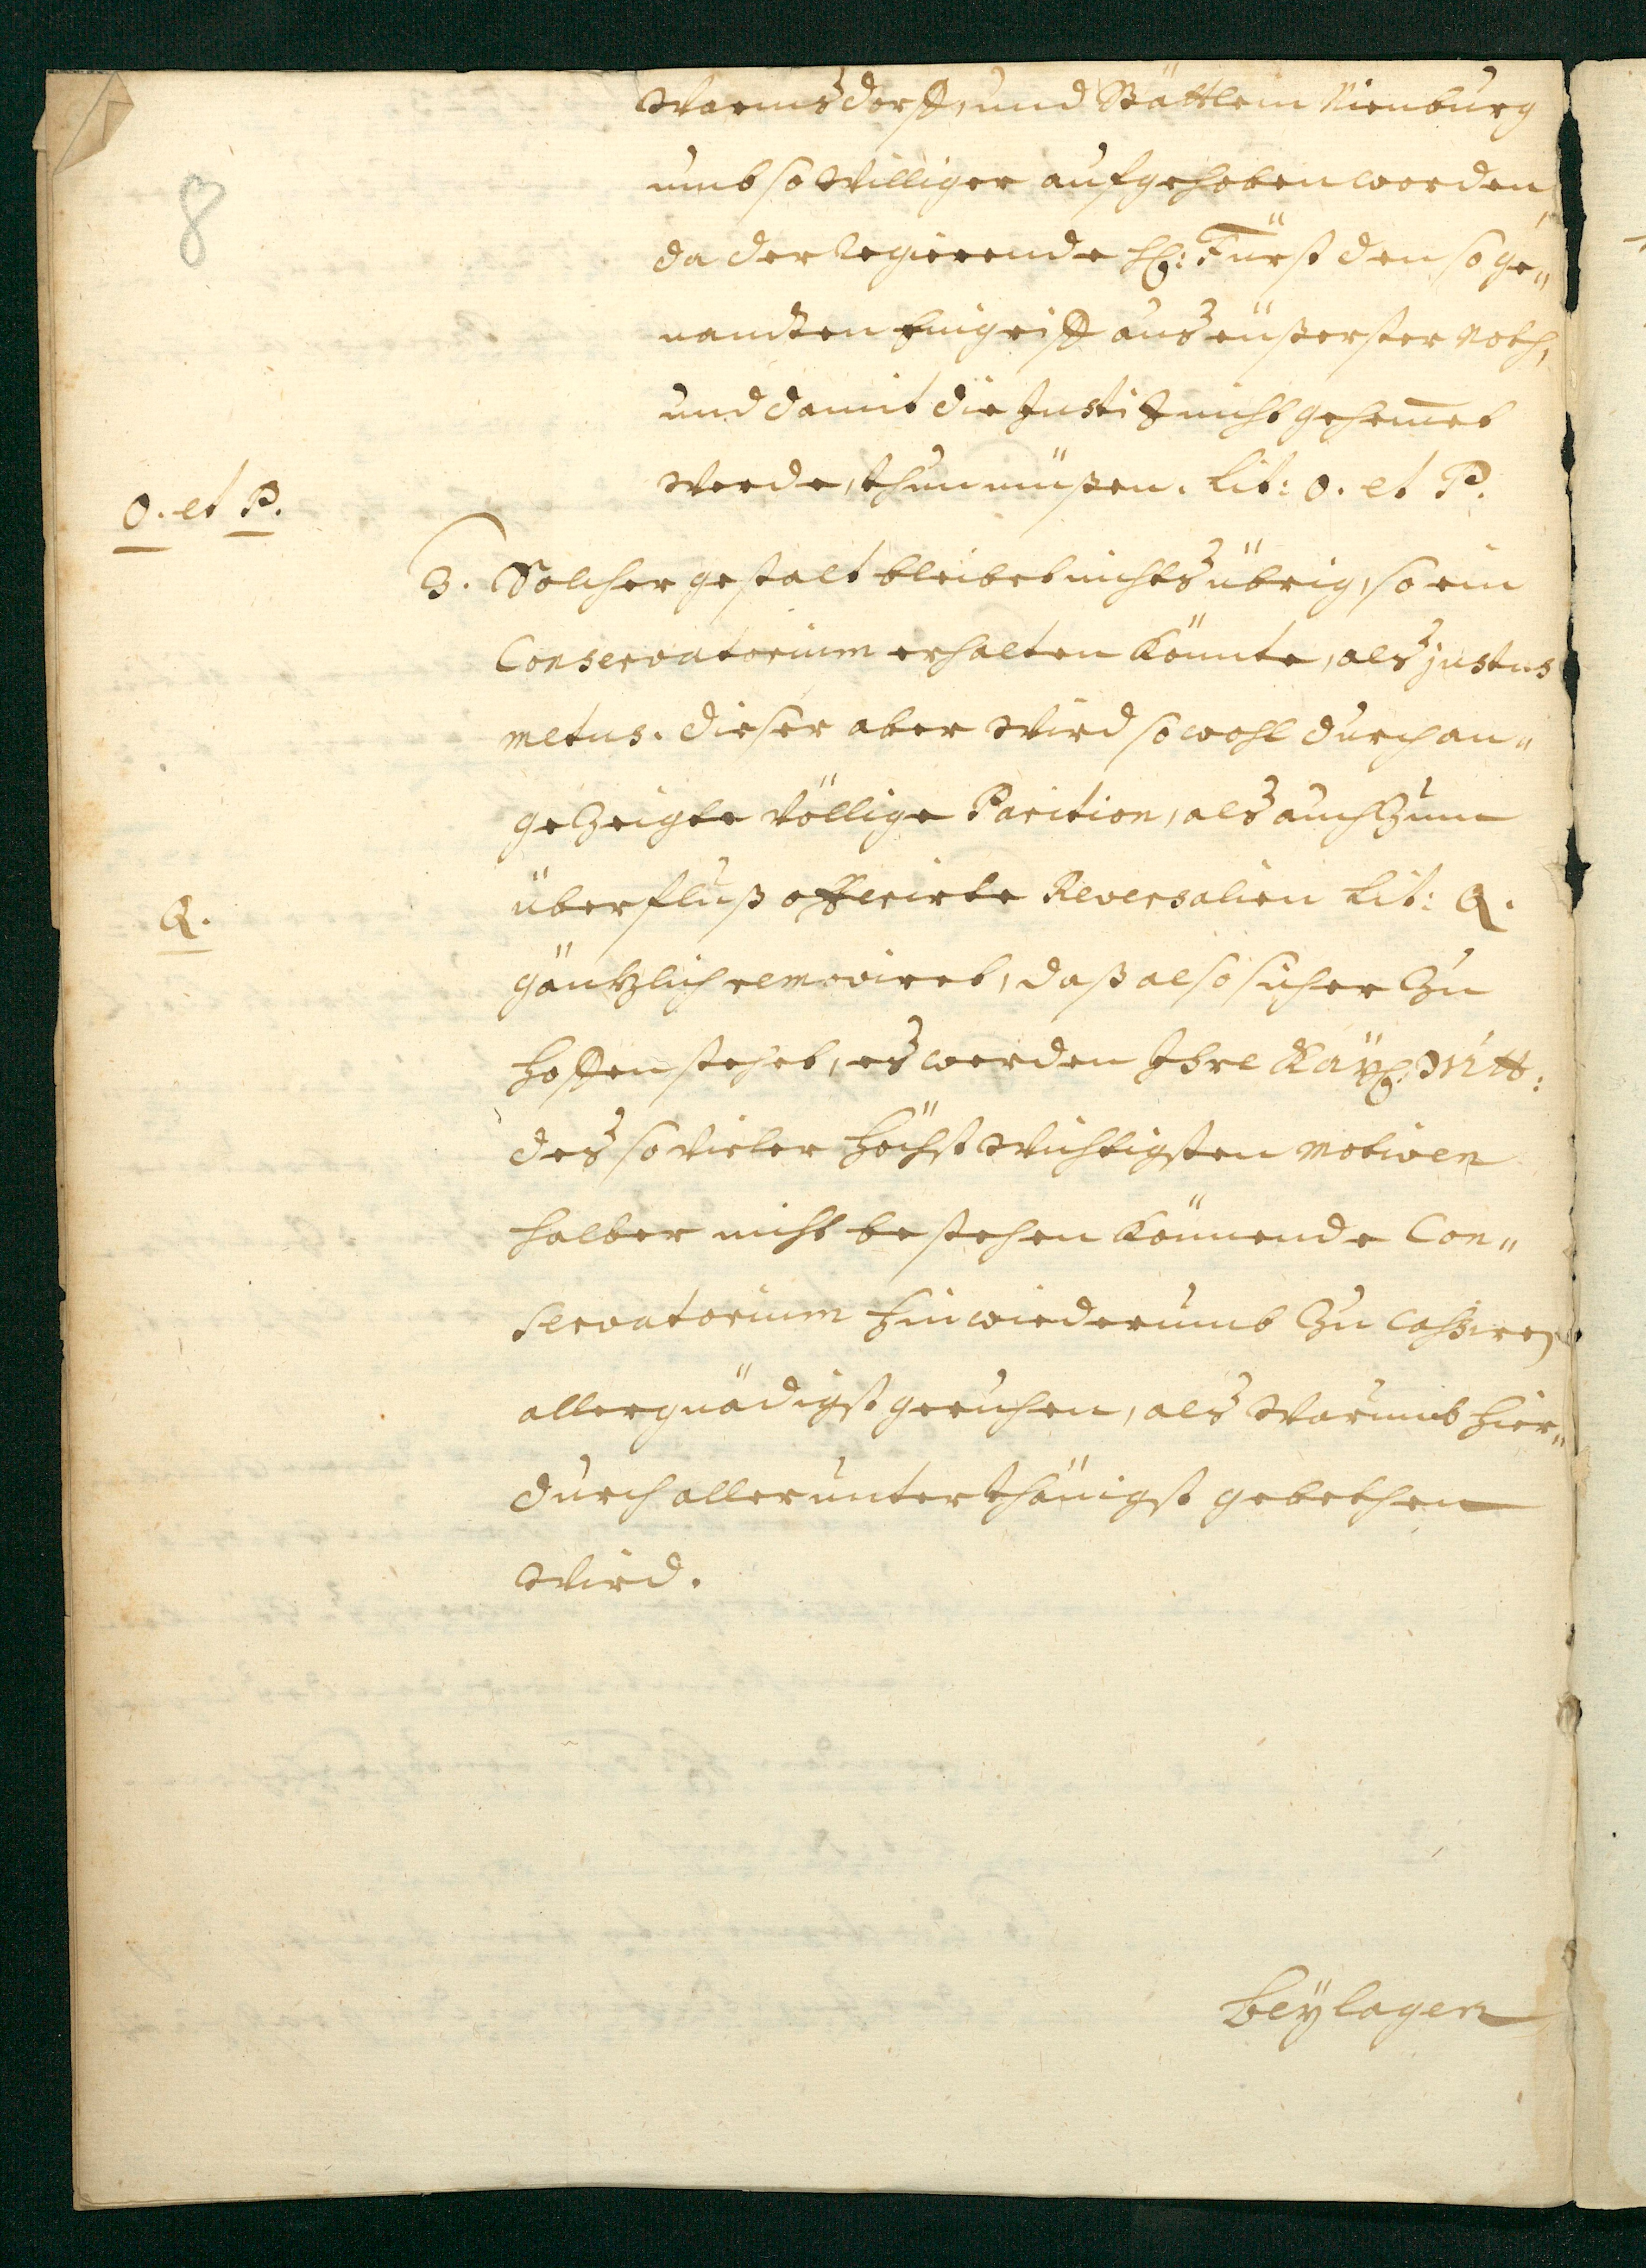 Warmsdorff, und Stättlein Nienburg
umb so williger aufgehoben worden,
8
da der regierende H: Fürst den so ge„
nandten Eingriff aus eüßerster Noth,
und damit die Justiz nicht gehem̄et
werde, thun müßen. Lit: O. et P.
O. et P.
3. Solcher gestalt bleibet nichts übrig, so ein
Conservatorium erhalten könnte, als justus
metus. Dieser aber wird sowohl durch an„
gezeigte völlige Parition, als auch zum
überfluß offerirte Reversalien Lit: Q.
Q.
gäntzlich removiret, daß also sicher zu
hoffen stehet, es werden Ihre Kayß. Mtt:
das so vieler höchst wichtigsten motiven
halber nicht bestehen könnende Con„
servatorium hinwiederumb zu cassiren
allergnädigst geruhen, als warumb hier„
durch allerunterthänigst gebethen
wird.
Beÿlagen